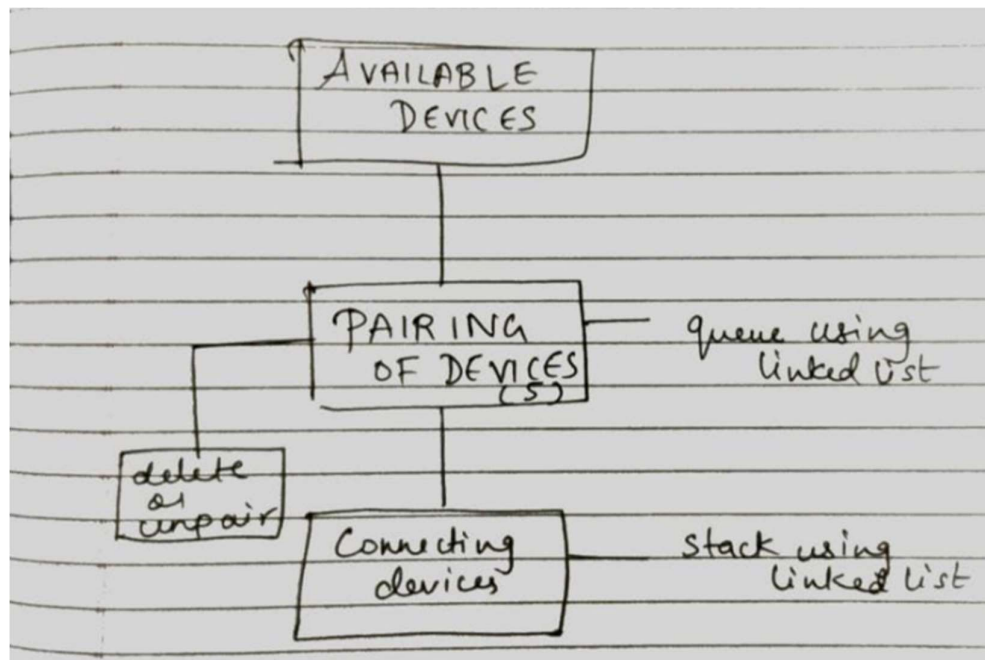 AVAILABLE
DEVICES
PAIRING
OF DEVICES
(5)
queue using
linked list
delete
or
unpair
Connecting
devices
stack using
linked list